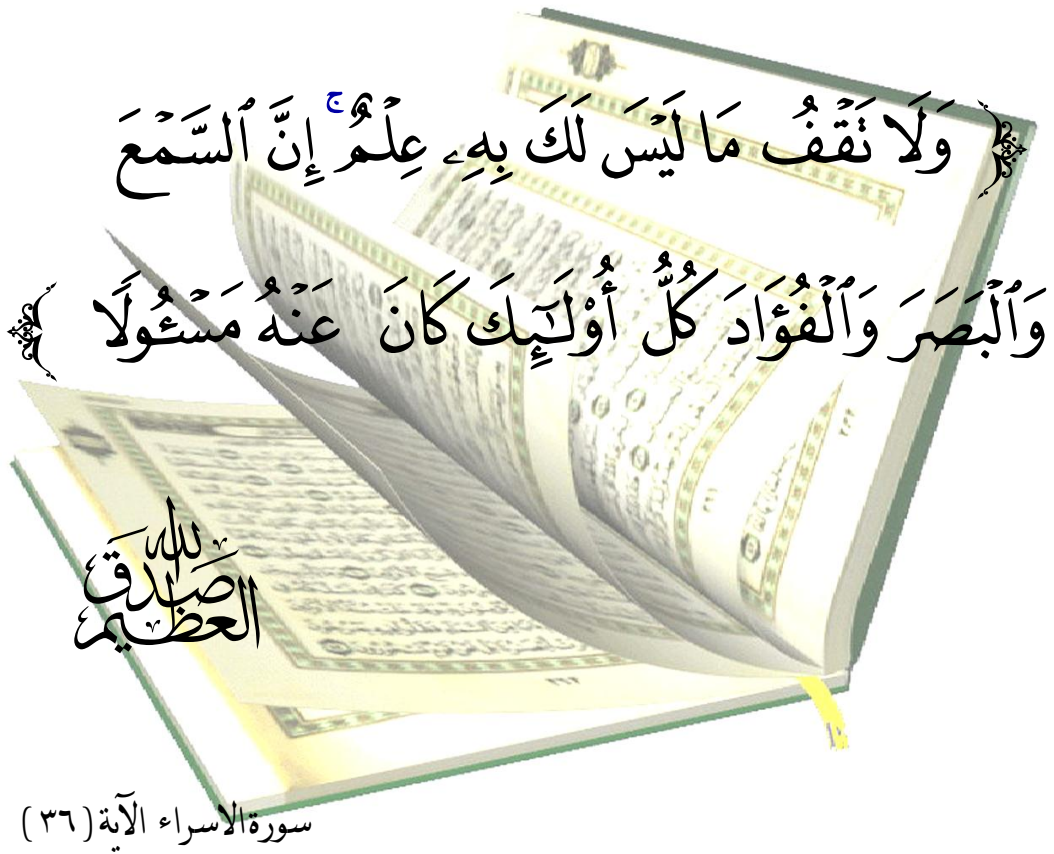 ﴿ وَلَا تَقْفُ مَا لَيْسَ لَكَ بِهِۦ عِلْمٌ ۚ إِنَّ ٱلسَّمْعَ
وَٱلْبَصَرَ وَٱلْفُؤَادَ كُلُّ أُو۟لَـٰٓئِكَ كَانَ عَنْهُ مَسْـُٔولًا ﴾
صدق الله العظيم
سورةالاسراء الآية (٣٦)